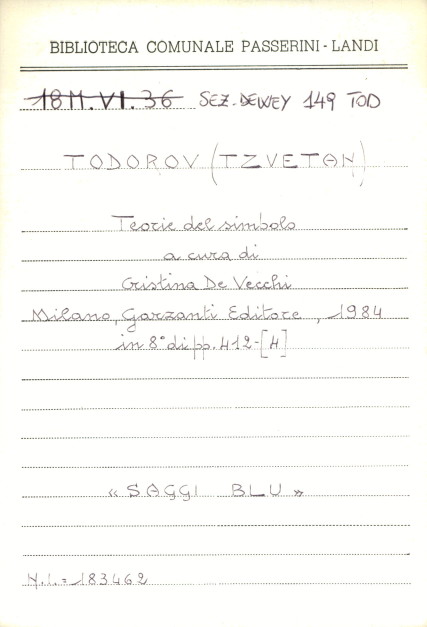 BIBLIOTECA COMUNALE PASSERINI - LANDI
18 M. VI. 36 SEZ. DEWEY 149 TOD
TODOROV (TZVETAN)
Teorie del simbolo
a cura di
Cristina De Vecchi
Milano, Garzanti Editore, 1984
in 8° di pp. 412-[4]
« SAGGI BLU »
N.I. = 183462